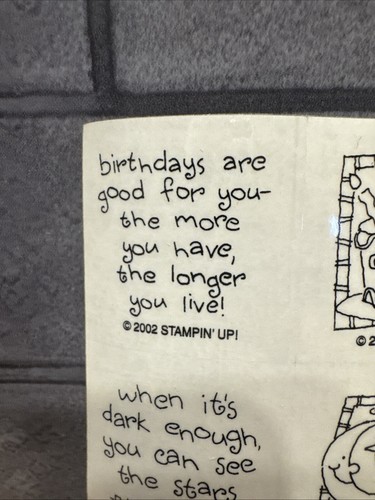 birthdays are
good for you-
the more
you have,
the longer
you live!
© 2002 STAMPIN' UP!
© 2
when it's
dark enough,
you can see
the stars